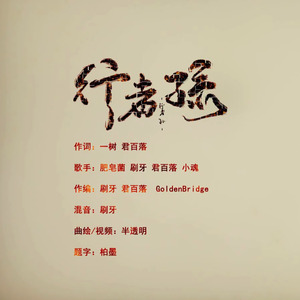 行者孫
作词：一树 君百落
歌手：肥皂菌 刷牙 君百落 小魂
作编：刷牙 君百落 GoldenBridge
混音：刷牙
曲绘/视频：半透明
题字：柏墨